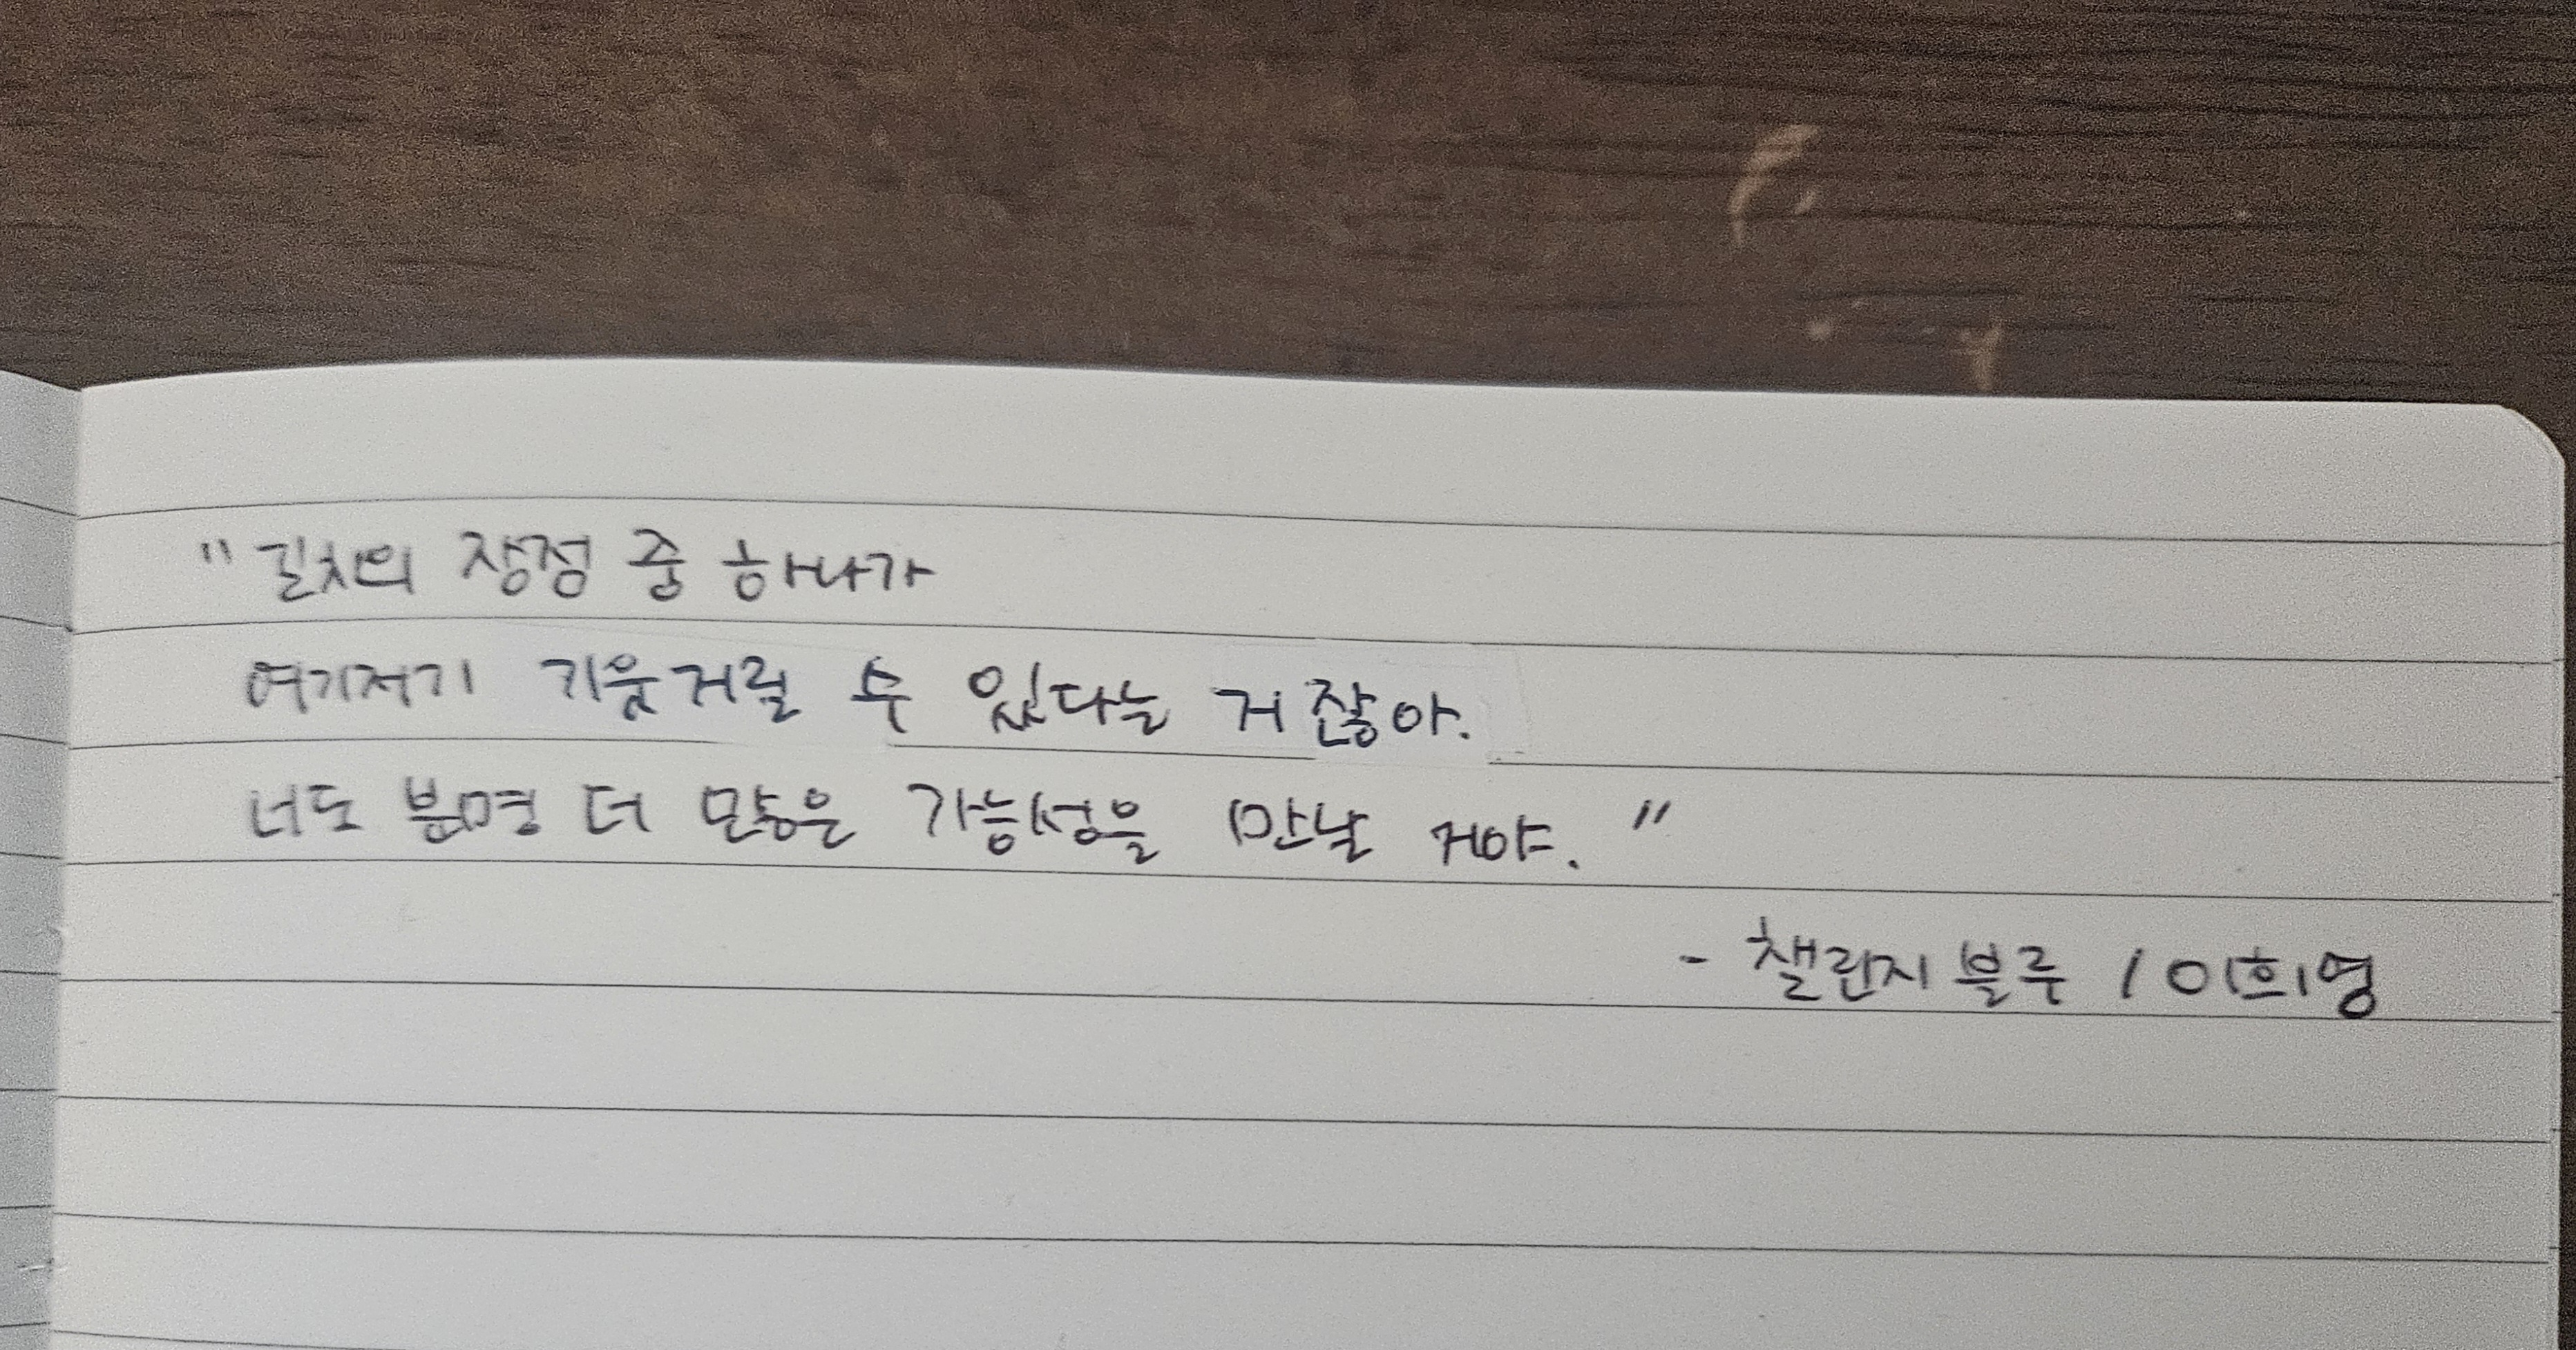 "길치의 장점 중 하나가
여기저기 기웃거릴 수 있다는 거잖아.
너도 분명 더 많은 가능성을 만날 거야."
- 챌린지 블루 / 이희영